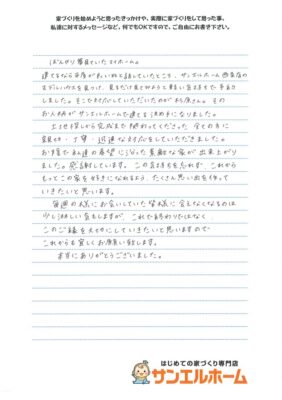 家づくりを始めようと思ったきっかけや、実際に家づくりをして思った事、
私達に対するメッセージなど、何でもOKですので、ご自由にお書き下さい。
ぼんやり夢見ていたマイホーム。
建てるなら平屋がいいねと話していたところ、サンエルホーム西条店の
モデルハウスを見つけ、見るだけ見てみようと軽い気持ちで予約
しました。そこで対応していただいたのが松原さん。その
お人柄がサンエルホームで建てる決め手になりました。
土地探しから完成まで関わってくださった全ての方に
親切・丁寧・迅速な対応をしていただきました。
お陰で私達の希望に沿った素敵な家が出来上がり
ました。感謝しています。この気持ちを忘れず、これから
もっとこの家を好きになれるよう、たくさん思い出を作って
いきたいと思います。
毎週の様にお会いしていた皆様に会えなくなるのは
少し淋しい気もしますが、これで終わりではなく、
このご縁を大切にしていきたいと思いますので
これからも宜しくお願い致します。
本当にありがとうございました。
はじめての家づくり専門店
サンエルホーム